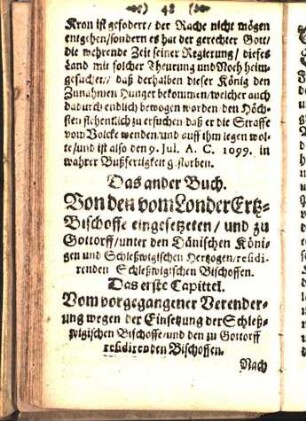 48
Kron ist gefodert/ der Rache nicht mögen
entgehen/sondern es hat der gerechter Gott/
die wehrende Zeit seiner Regierung/ dieses
Land mit solcher Theurung und Noth heim
gesuchet/ daß derhalben dieser König den
Zunahmen Hunger bekommen/welcher auch
dadurch endlich bewogen worden den Höch-
sten flehentlich zu ersuchen daß er die Straffe
vom Volcke wenden/und auff ihm legen wol-
te/und ist also den 9. Jul. A. C. 1099. in
wahrer Bußfertigkeit gestorben.
Das ander Buch.
Von den vom Londer Ertz-
Bischoffe eingesetzeten/ und zu
Gottorff/unter den Dänischen Köni-
gen und Schleßwigischen Hertzogen/residi-
renden Schleßwigischen Bischoffen.
Das erste Capittel.
Vom vorgegangener Verender-
ung wegen der Einsetzung der Schleß-
wigischen Bischoffe/und den zu Gottorff
residirenden Bischoffen.
Nach